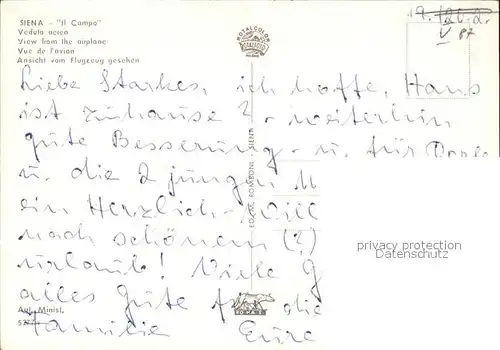 SIENA - "Il Campo"
Veduta aerea
View from the airplane
Vue de l'avion
Ansicht vom Flugzeug gesehen
ROTALCOLOR
V 87
Liebe Starkes, ich hoffe, Hans
ist zuhause? - weiterhin
gute Besserung - u. für
u. die 2 jungen
ein Herzlich - Will
nach schönem (?)
Urlaub! Viele G
alles Gute für die
Familie Eure
privacy protection
Datenschutz
EDIZ. ROMBONI - SIENA
Aut. Minist.
ROMA